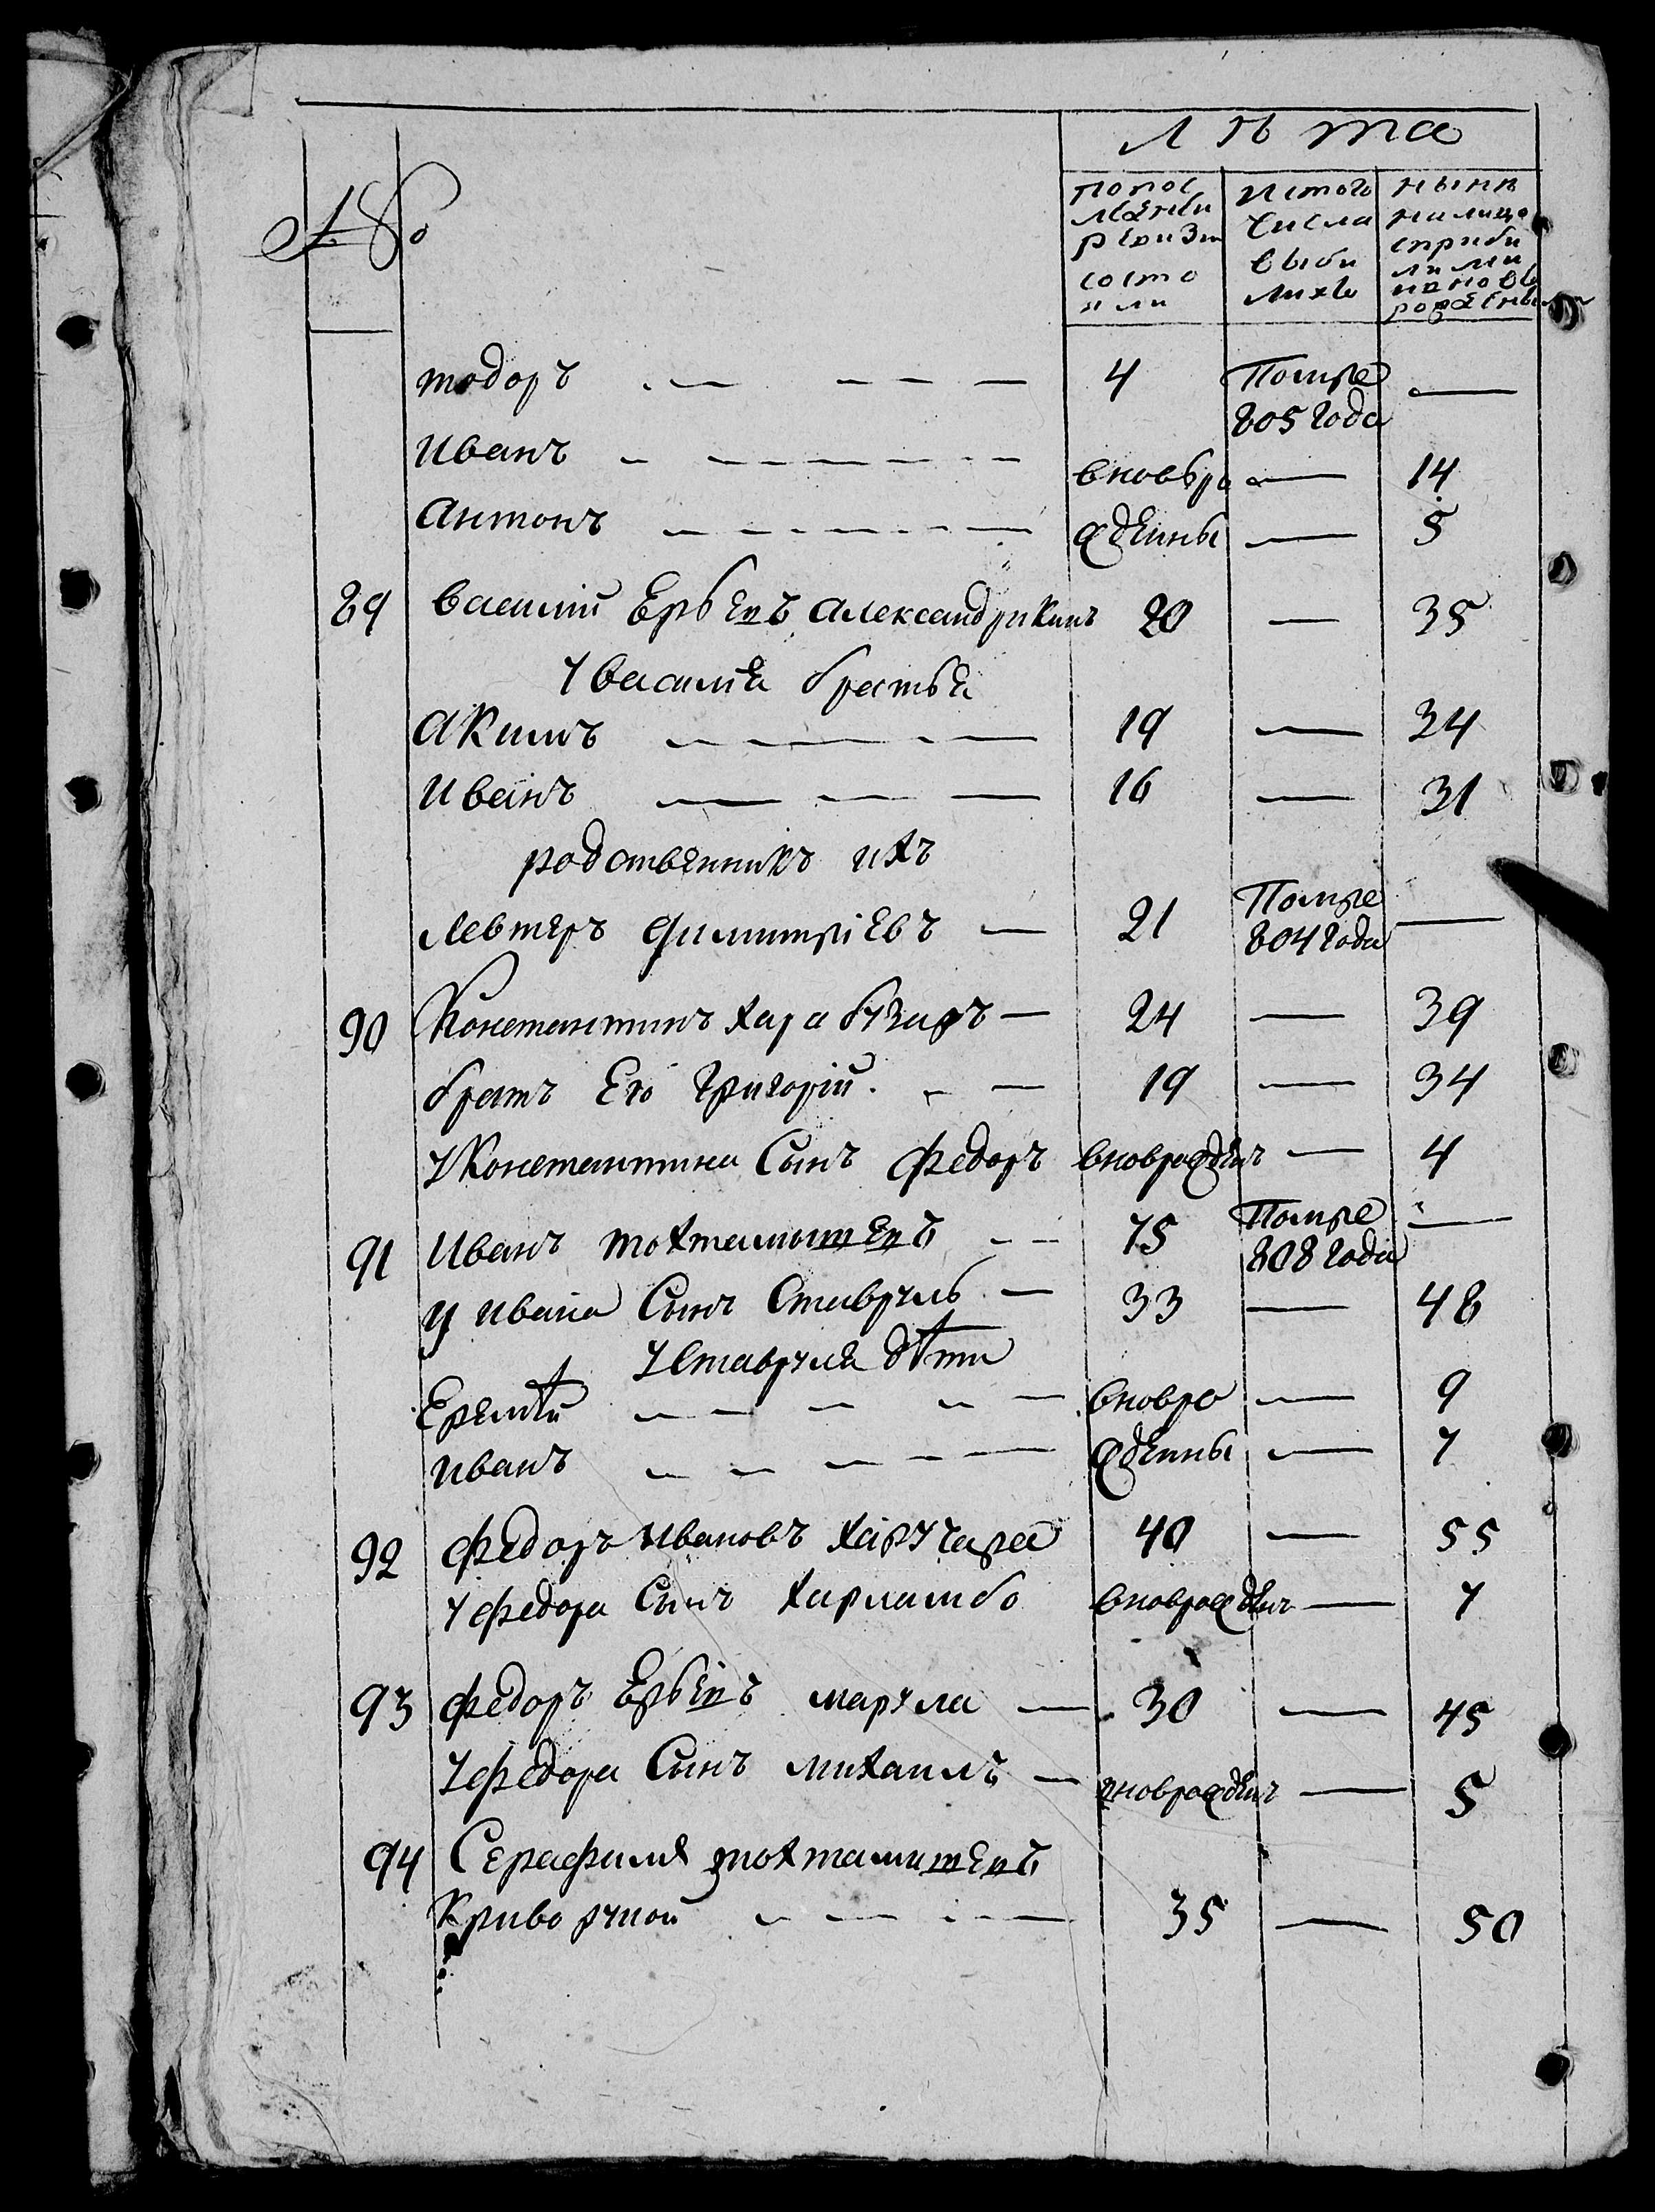 лѣта
№
попос
лѣдней
ревизи
состо
яли
Истого
числа
выбы
лихъ
нынѣ
налицо
сприбы
лыми
иновь
рожденны
тодоръ — — — — 4 Помре —
805 года
Иванъ — — — — — — вновьро — 14
Антонъ — — — — — — жденны — 5
89 василий Ербейъ Александрикинъ 20 — 35
у василія братья
Акимъ — — — — — 19 — 34
Иванъ — — — 16 — 31
родственникъ ихъ
Левтеръ Димитріевъ — 21 Помре —
804 года
90 Константинъ Харабузаръ — 24 — 39
братъ Его Григорій — — 19 — 34
у Константина Сынъ федоръ вноврожденъ — 4
91 Иванъ тохтамышевъ — — 75 Помре —
808 года
у ивана Сынъ Ставруль — 33 — 48
у Ставруля дѣти
Еремѣй — — — — — вновро — 9
иванъ — — — — — жденны — 7
92 федоръ ивановъ харучара 40 — 55
у федора Сынъ харламбо вноврожденъ — 7
93 федоръ Ербейъ марула — 30 — 45
у федора Сынъ михаилъ — вноврожденъ — 5
94 Серафимъ тохтамишевъ
Криворучной — — — — 35 — 50